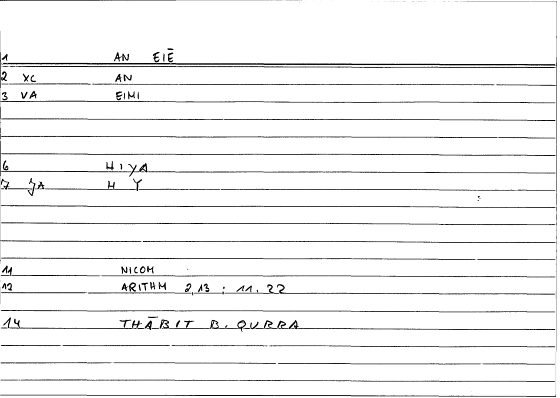 1 AN EIĒ
2 XC AN
3 VA EIMI
6 HIYA
7 JA H Y
11 NICOM
12 ARITHM 2,13 : 11.22
14 THĀBIT B. QURRA